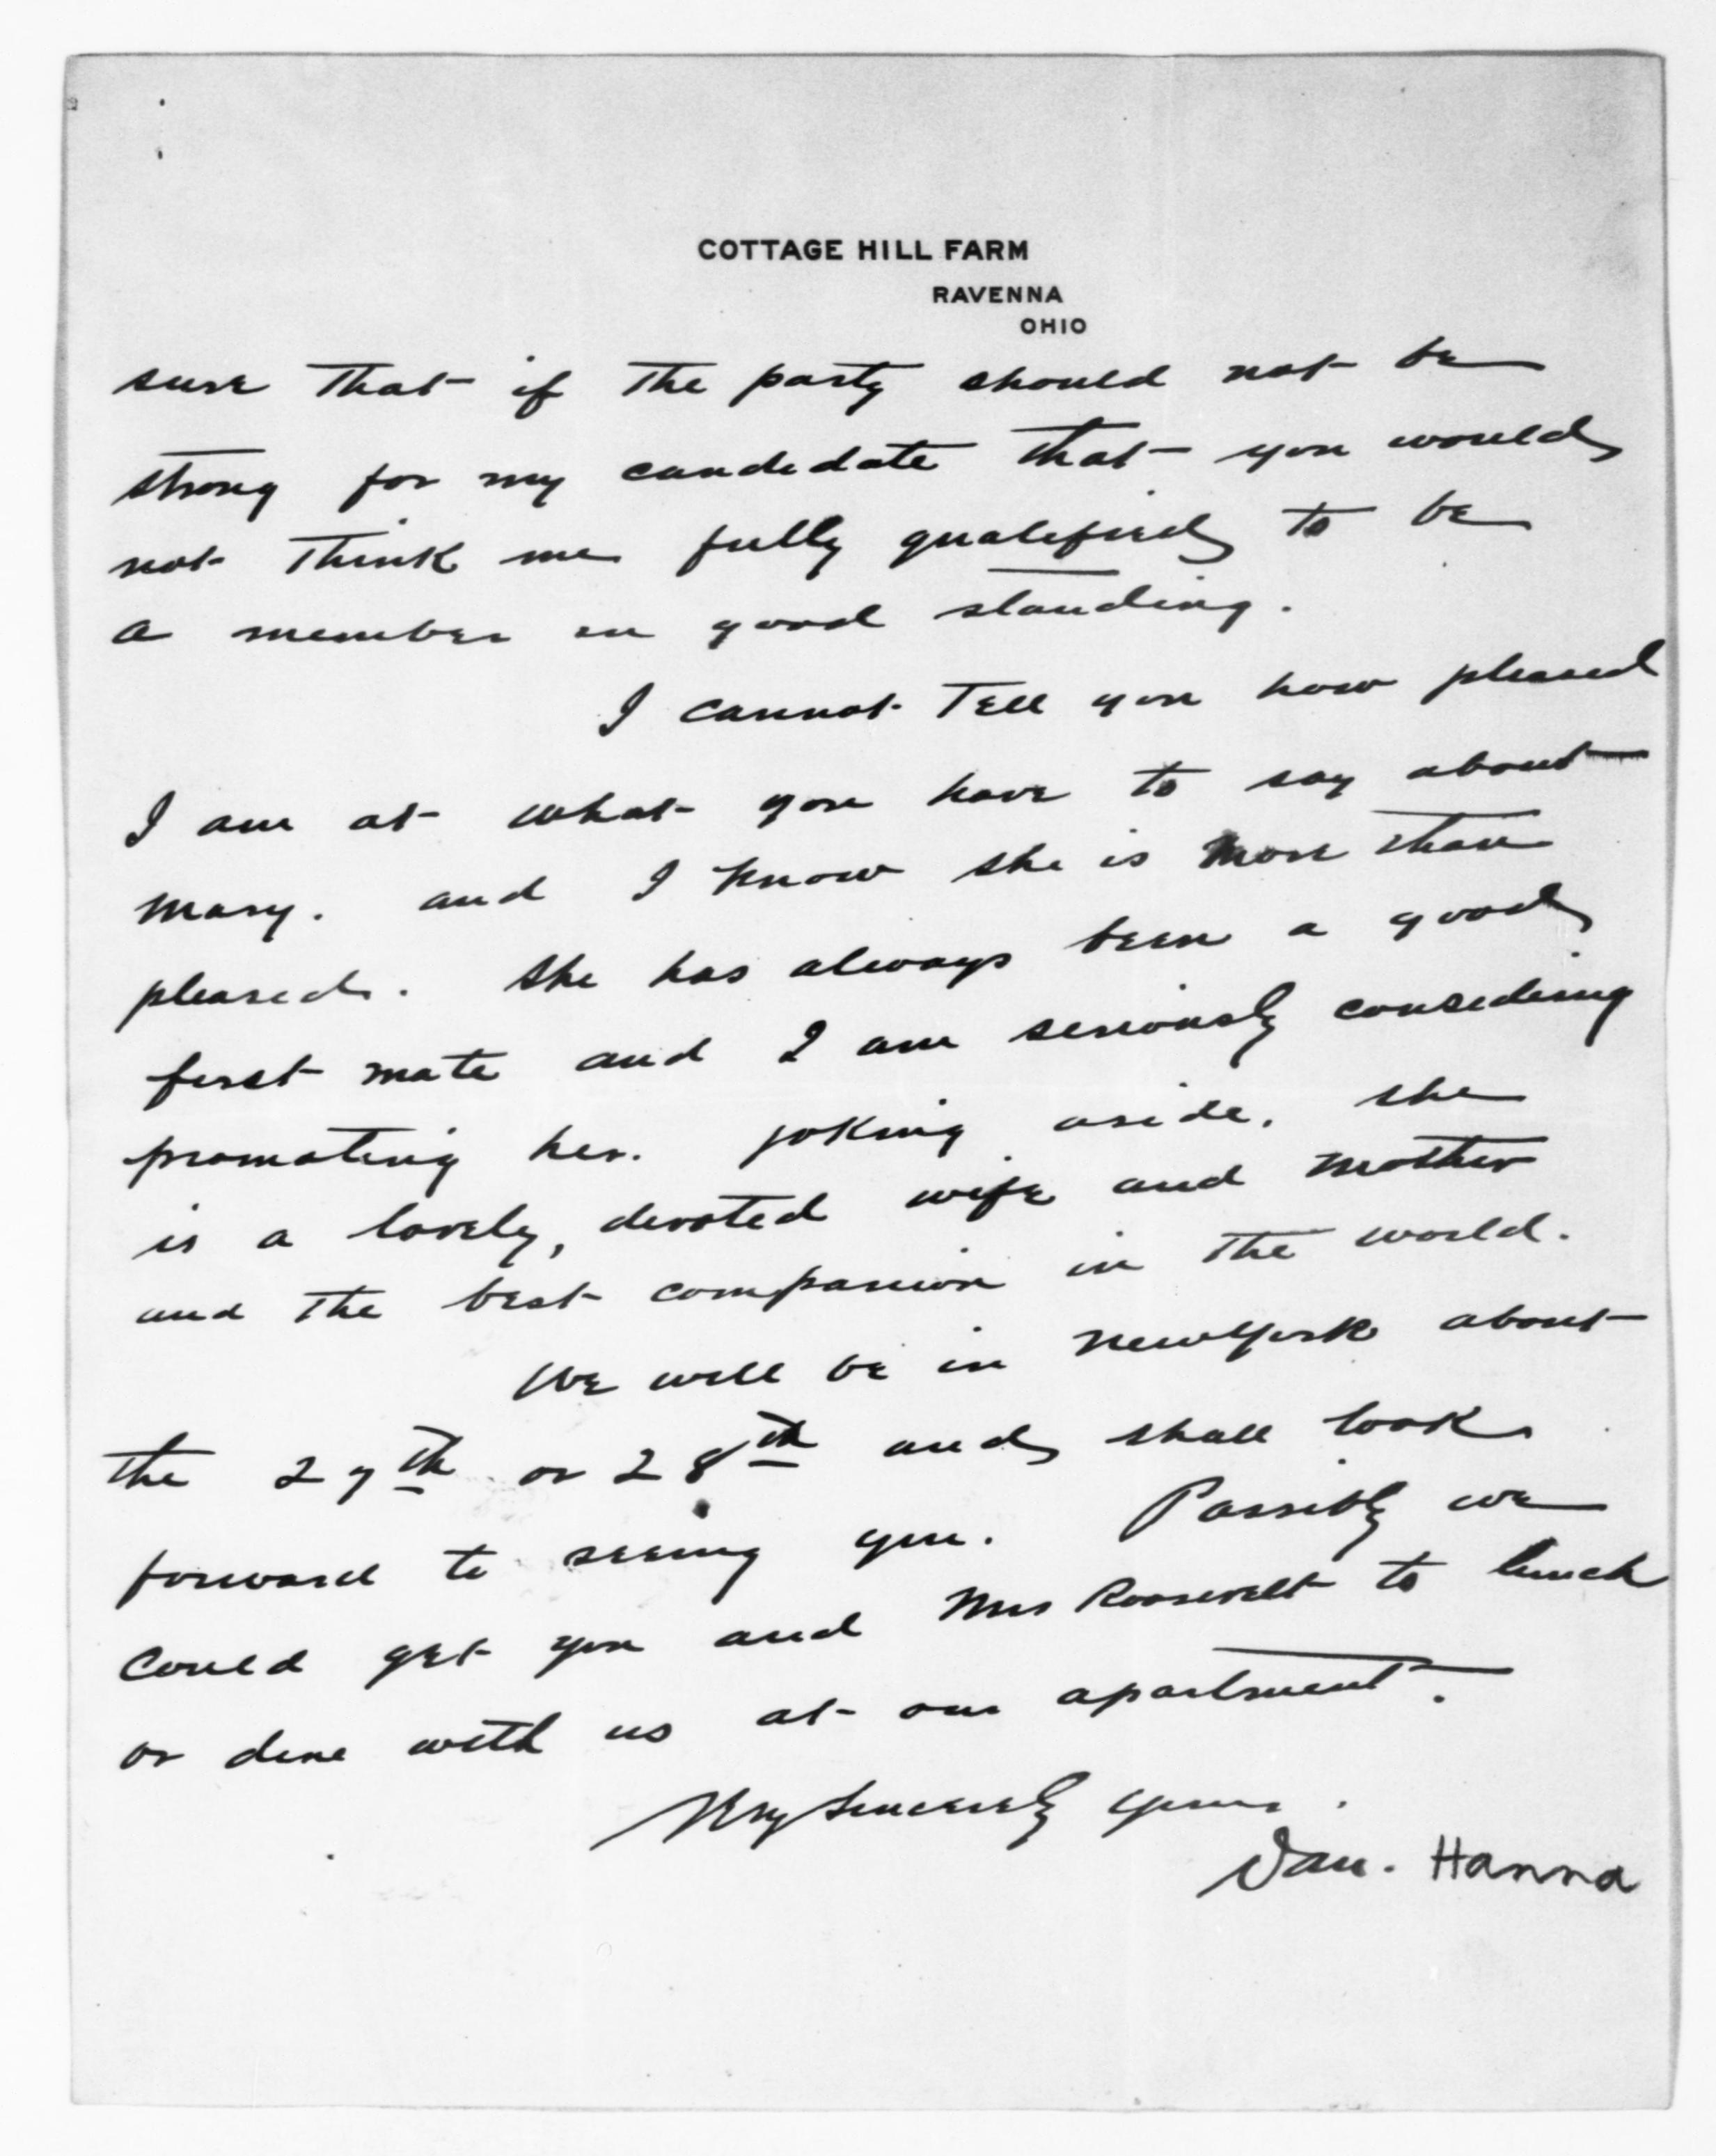 COTTAGE HILL FARM
RAVENNA
OHIO
sure that if the party should not be
strong for my candidate that you would
not think me fully qualified to be
a member in good standing.
I cannot tell you how pleased
I am at what you have to say about
Mary. and I know she is more than
pleased. She has always been a good
first mate and I am seriously considering
promoting her. Joking aside, she
is a lovely, devoted wife and mother
and the best companion in the world.
We will be in New York about
the 27th or 28th and shall look
forward to seeing you. Possibly we
could get you and Mrs Roosevelt to lunch
or dine with us at our apartment.
Very Sincerely yours.
Dan. Hanna